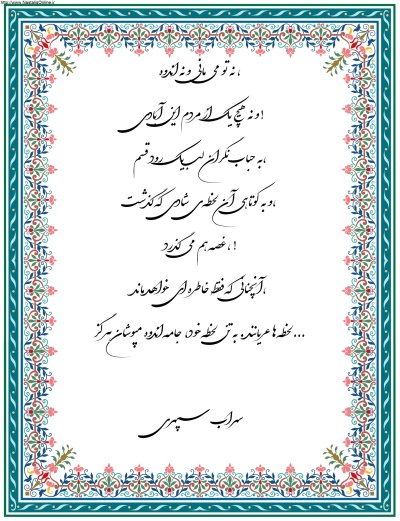 http://www.NastaliqOnline.ir
نه تو می مانی و نه اندوه،
و نه هیچ یک از مردم این آبادی!
به حباب نگران لب یک رود قسم،
و به کوتاهی آن لحظه‌ی شادی که گذشت،
غصه هم می گذرد،!
آنچنانی که فقط خاطره ای خواهد ماند،
لحظه ها عریانند. به تن لحظه خود، جامه اندوه مپوشان هرگز...
سهراب سپهری